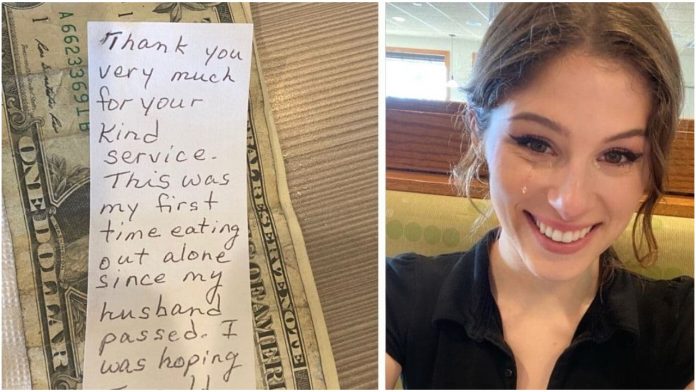 A66233691B
ONE DOLLAR
Thank you
very much
for your
Kind
service.
This was
my first
time eating
out alone
since my
husband
passed. I
was hoping